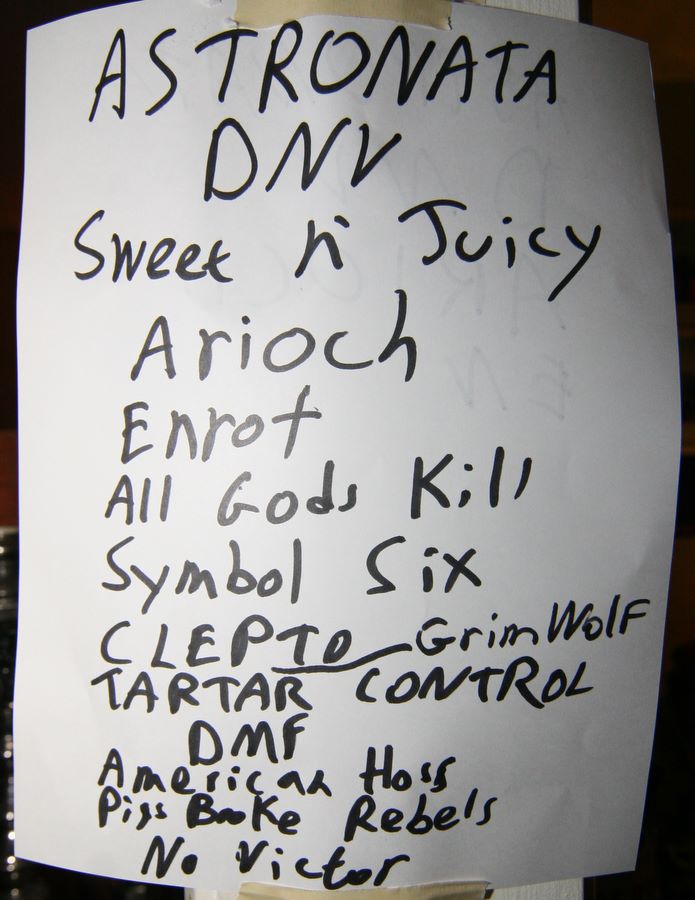 ASTRONATA
DNV
Sweet n' Juicy
Arioch
Enrot
All Gods Kill
Symbol Six
CLEPTO GrimWolf
TARTAR CONTROL
DMF
American Hoss
Rebels
No Victor